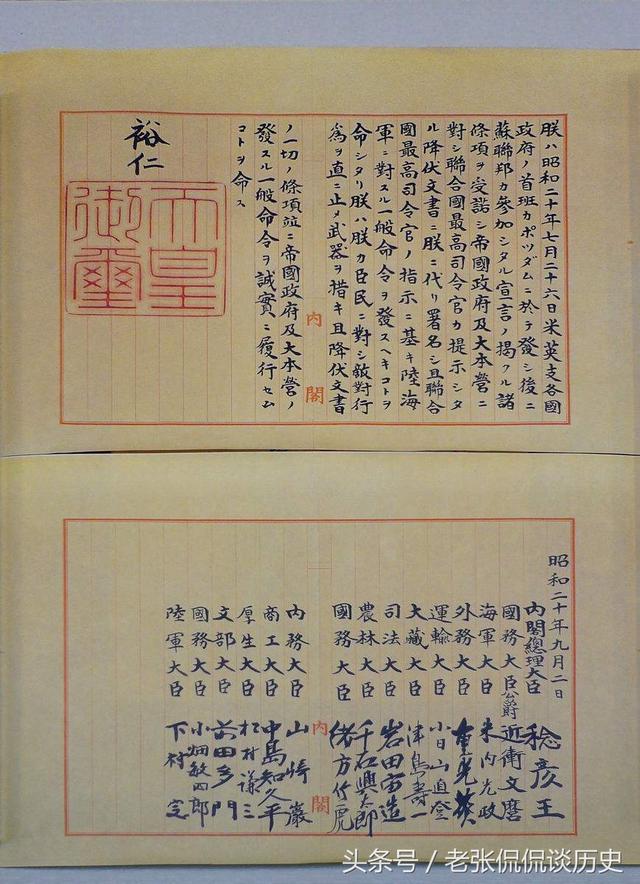 朕ハ昭和二十年七月二十六日米英支各國
政府ノ首班カポツダムニ於テ發シ後ニ
蘇聯邦カ參加シタル宣言ノ掲クル諸
條項ヲ受諾シ帝國政府及大本營ニ
對シ聯合國最高司令官カ提示シタ
ル降伏文書ニ朕ニ代リ署名シ且聯合
國最高司令官ノ指示ニ基キ陸海
軍ニ對スル一般命令ヲ發スヘキコトヲ
命シタリ朕ハ朕カ臣民ニ對シ敵對行
爲ヲ直ニ止メ武器ヲ措キ且降伏文書
ノ一切ノ條項竝ニ帝國政府及大本營ノ
發スル一般命令ヲ誠實ニ履行セム
コトヲ命ス
裕仁
天皇
御璽
内閣
昭和二十年九月二日
内閣總理大臣 稔彦王
國務大臣公爵 近衛文麿
海軍大臣 米内光政
外務大臣 重光葵
運輸大臣 小日山直登
大藏大臣 津島壽一
司法大臣 岩田宙造
農林大臣 千石興太郎
國務大臣 緒方竹虎
内務大臣 山崎巖
商工大臣 中島知久平
厚生大臣 松村謙三
文部大臣 前田多門
國務大臣 小畑敏四郎
陸軍大臣 下村定
内閣
头条号 / 老张侃侃谈历史